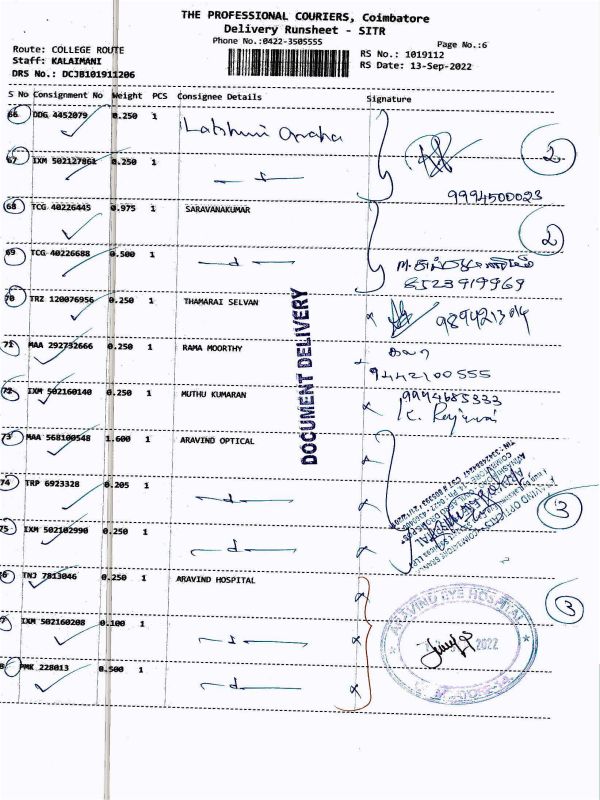 THE PROFESSIONAL COURIERS, Coimbatore
Delivery Runsheet - SITR
Phone No.:0422-3505555
Page No.:6
Route: COLLEGE ROUTE
Staff: KALAIMANI
DRS No.: DCJB101911206
RS No.: 1019112
RS Date: 13-Sep-2022
S No Consignment No Weight PCS Consignee Details Signature
66 DDG 4452079 0.250 1
67 IXM 502127861 0.250 1
2
9994500023
68 TCG 40226445 0.975 1 SARAVANAKUMAR
2
69 TCG 40226688 0.500 1
8523919969
70 TRZ 120076956 0.250 1 THAMARAI SELVAN
DOCUMENT DELIVERY
71 MAA 292732666 0.250 1 RAMA MOORTHY
9442100555
72 IXM 502160140 0.250 1 MUTHU KUMARAN
9994685333
73 MAA 568100548 1.600 1 ARAVIND OPTICAL
74 TRP 6923328 0.205 1
3
75 IXM 502102990 0.250 1
6 TNJ 7813046 0.250 1 ARAVIND HOSPITAL
3
7 IXM 502160208 0.100 1
ARAVIND EYE HOSPITAL
2022
8 PMK 228013 0.500 1